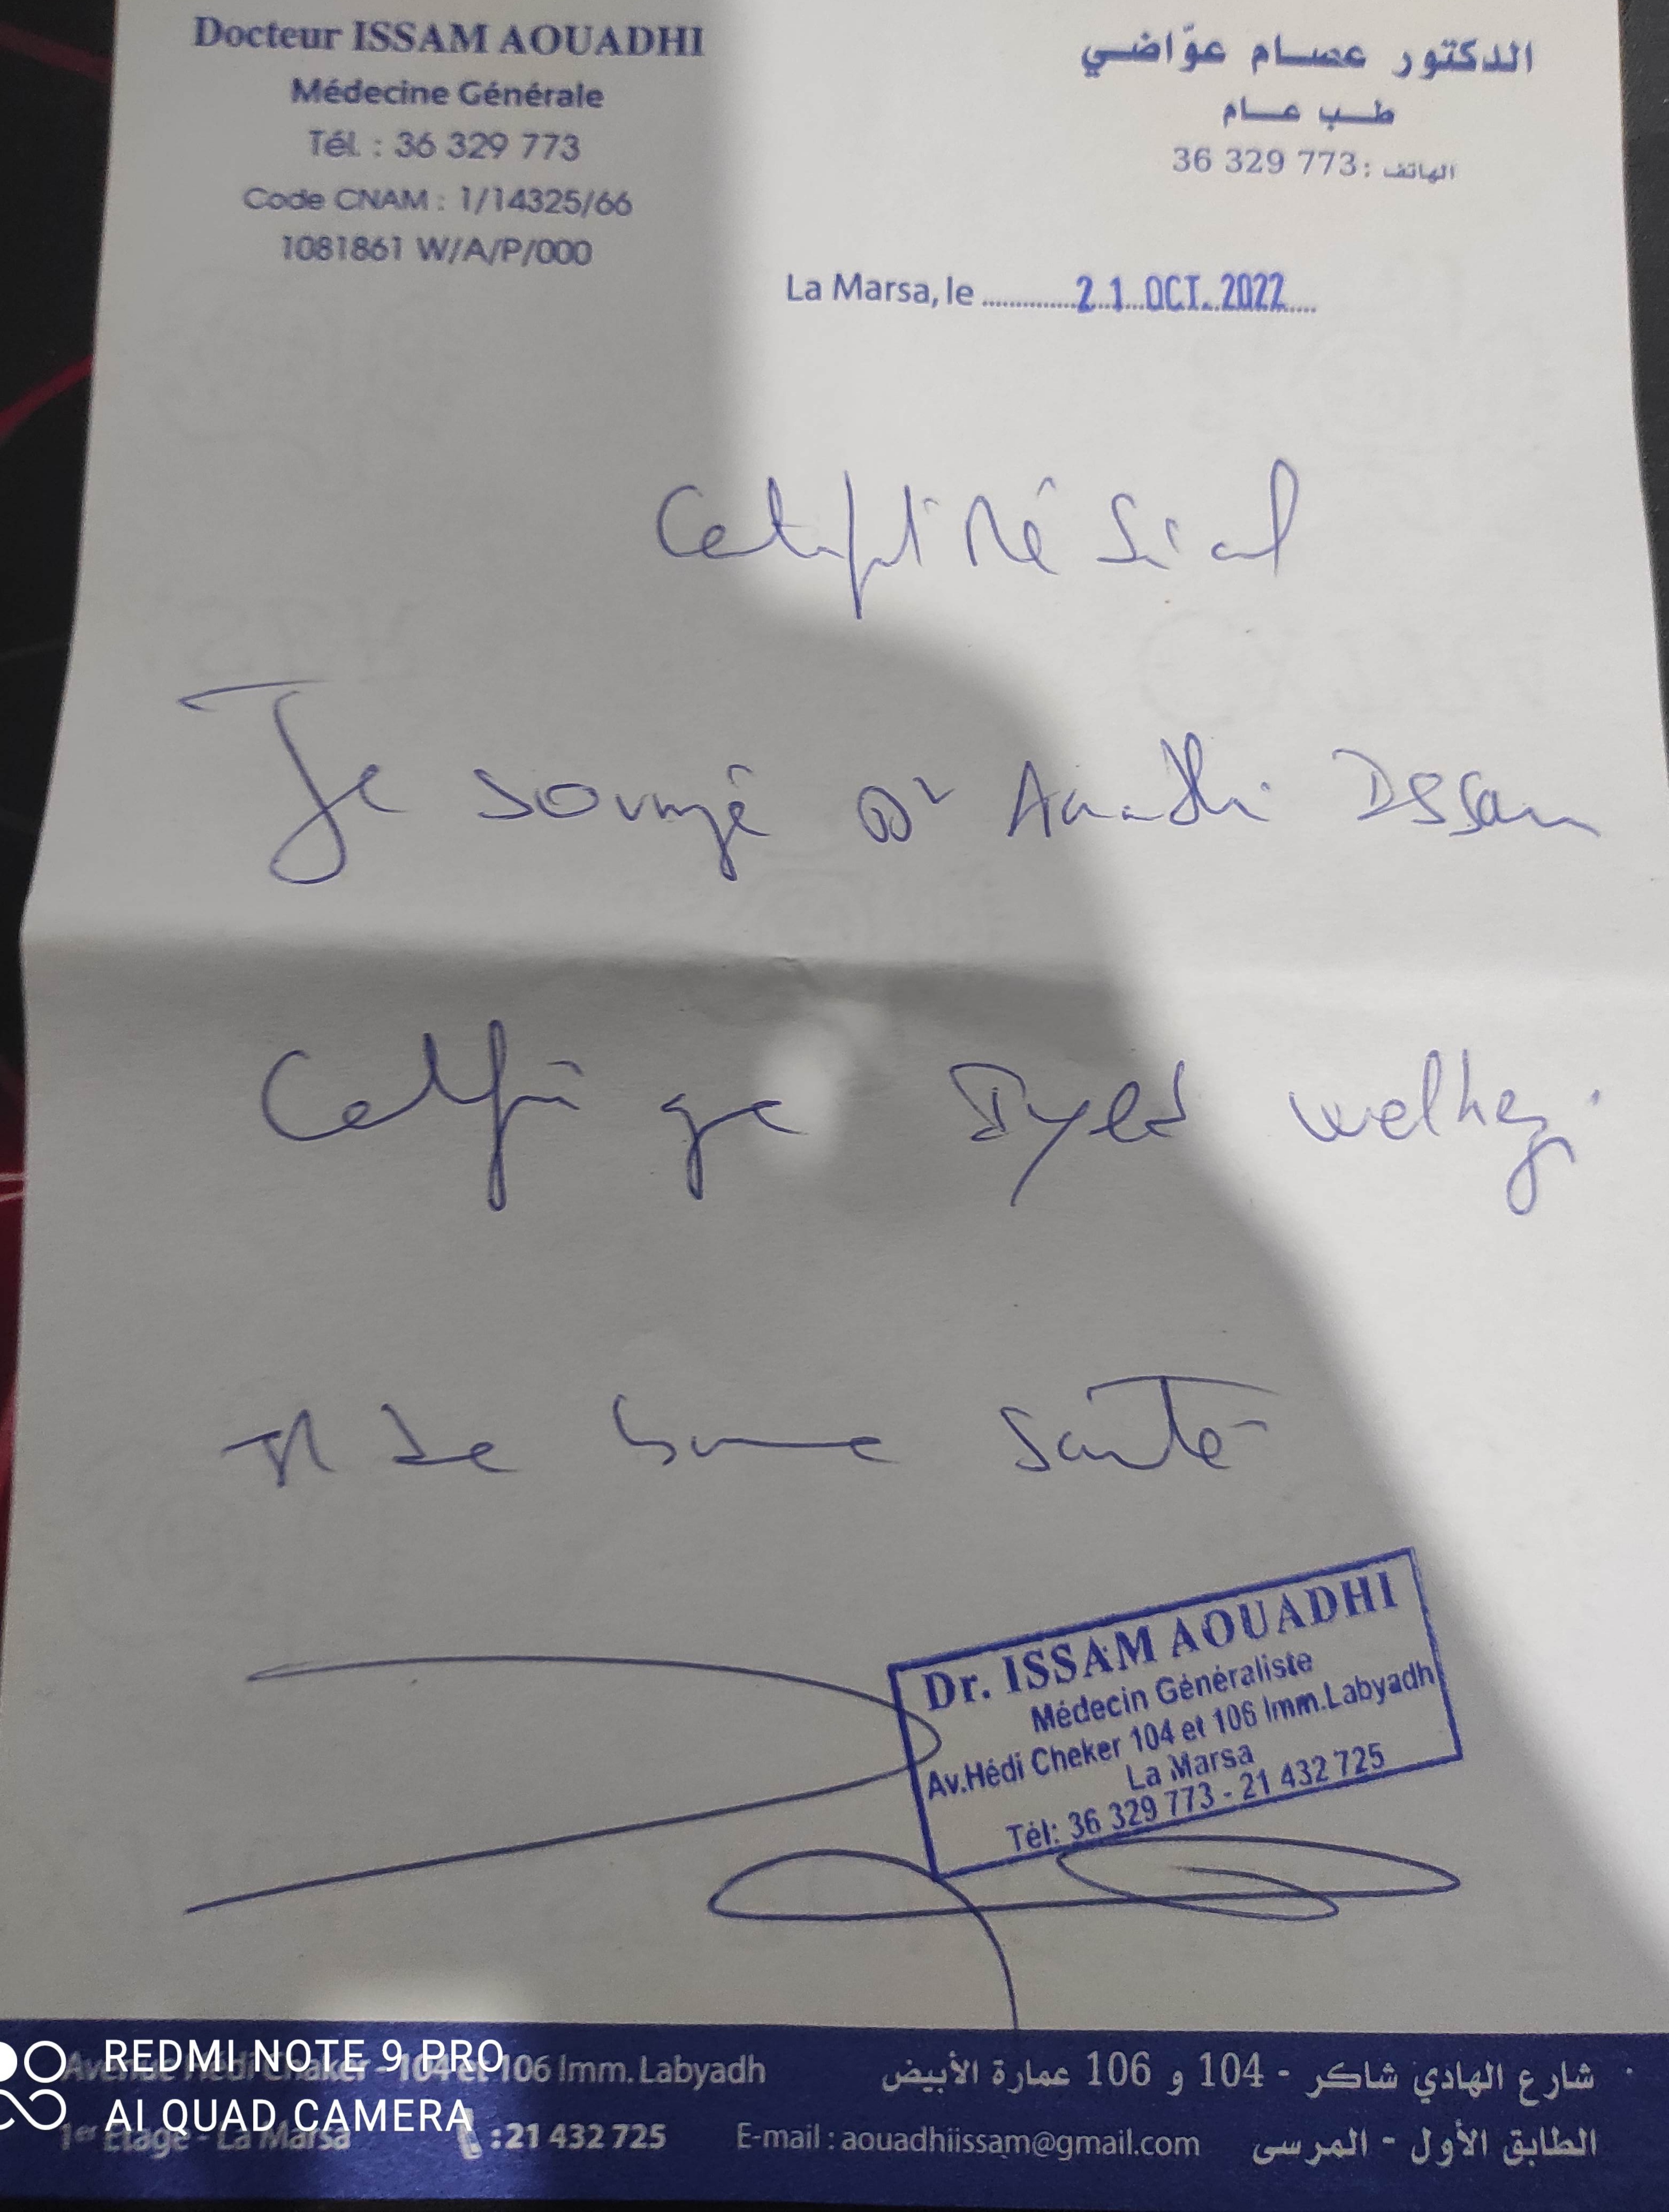 Docteur ISSAM AOUADHI
Médecine Générale
Tél. : 36 329 773
Code CNAM : 1/14325/66
1081861 W/A/P/000
الدكتور عصام عوّاضي
طب عام
الهاتف : 36 329 773
La Marsa, le 21 OCT. 2022
Certificat Médical
Je soussigné Dr Aouadhi Issam
Certifie que Iyed
est de bonne santé
Dr. ISSAM AOUADHI
Médecin Généraliste
Av.Hédi Cheker 104 et 106 Imm.Labyadh
La Marsa
Tél: 36 329 773 - 21 432 725
Avenue Hédi Chaker - 104 et 106 Imm. Labyadh
1er Etage - La Marsa :21 432 725 E-mail : aouadhiissam@gmail.com
شارع الهادي شاكر - 104 و 106 عمارة الأبيض
الطابق الأول - المرسى
REDMI NOTE 9 PRO
AI QUAD CAMERA